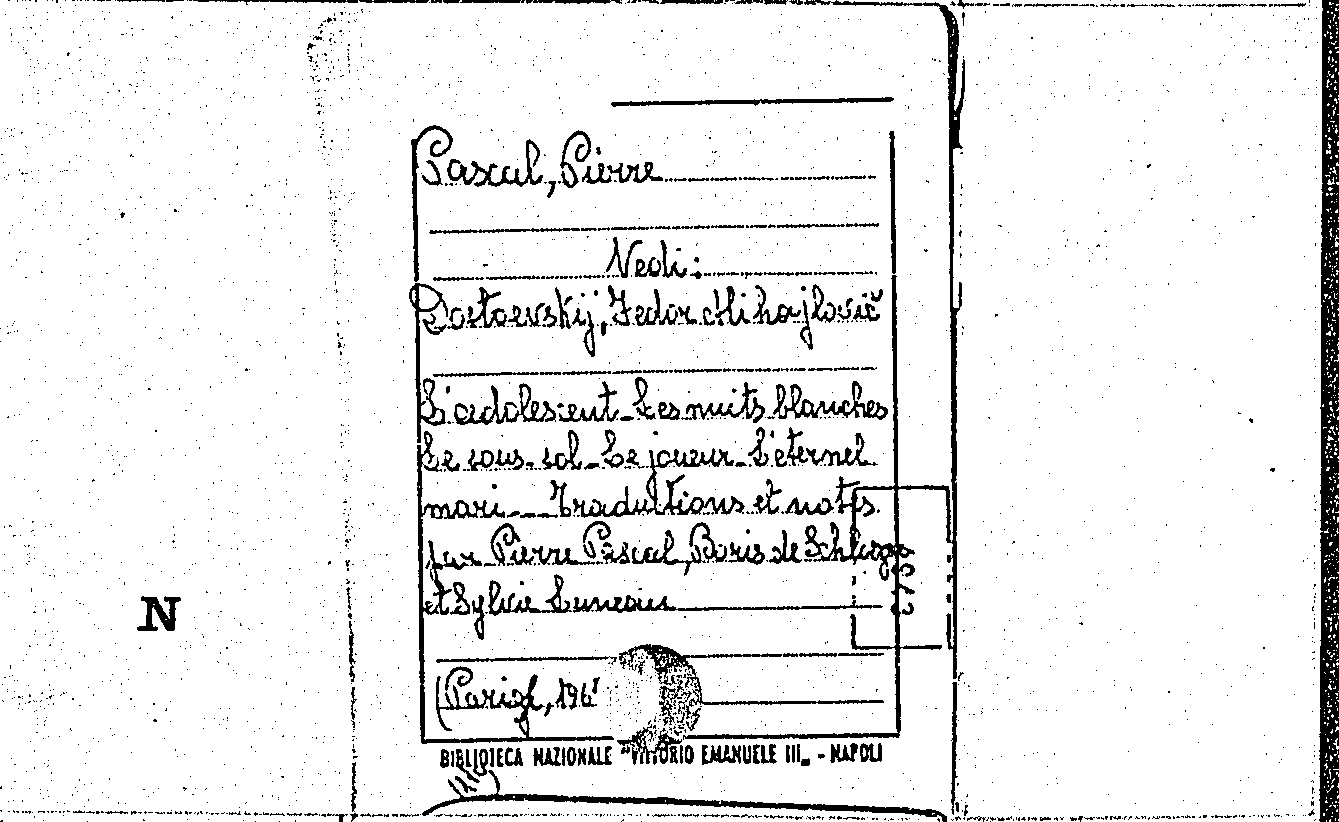 Pascal, Pierre
Vedi:
Dostoevskij, Fedor Mihajlovič
L'adolescent - Les nuits blanches
Le sous-sol - Le joueur - L'éternel
mari. - Traductions et notes
par Pierre Pascal, Boris de Schloezer
et Sylvie Luneau
(Parigi, 196
N
BIBLIOTECA NAZIONALE "VITTORIO EMANUELE III„ - NAPOLI